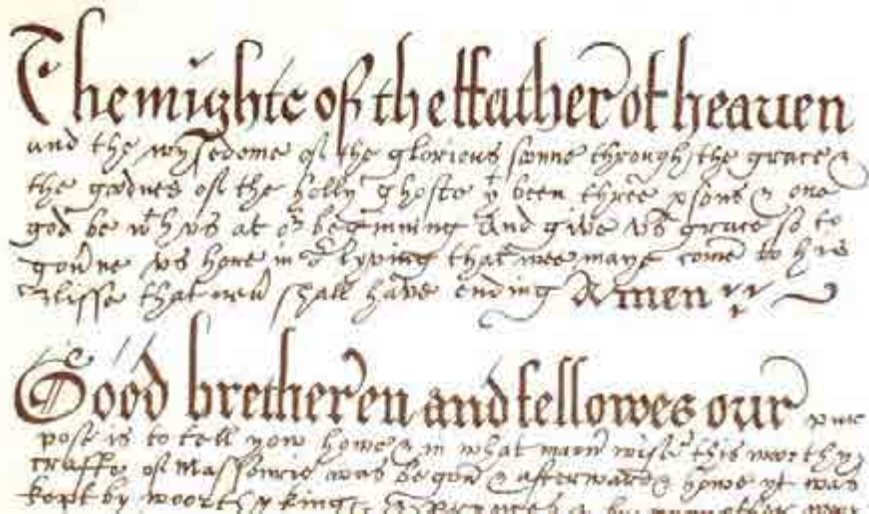 The mighte of the ffather of heaven
and the wysedome of the glorious sonne through the grace &
the goodnes of the holly ghoste yt been three psons & one
god be wth vs at or beginning and give vs grace so to
gou̅ne vs here in or lyving that wee maye come to his
blisse that neu̅ shall have ending Amen
Good bretheren and fellowes our pur
pose is to tell you howe & in what mann̅ wise this worthy
crafte of Massonrie was begun & afterwards howe yt was
kept by woorthy kings & Prynces & by many other wor